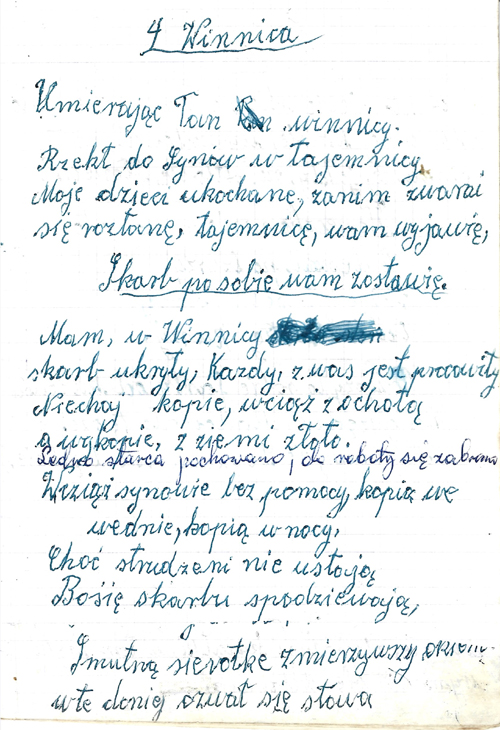 4 Winnica
Umierając Pan winnicy.
Rzekł do Synów w tajemnicy.
Moje dzieci ukochane, zanim z wami
się rozstanę, tajemnicę, wam wyjawię,
Skarb po sobie wam zostawię.
Mam, w Winnicy
skarb ukryty, Każdy, z was jest pracowity
Niechaj kopie, wciąż z ochotą
a wykopie, z ziemi złoto.
Ledwo starca pochowano, do roboty się zabrano
Wciąż synowie bez pomocy, kopią we
wednie, kopią w nocy,
Choć strudzeni nie ustają
Bo się skarbu spodziewają,
Smutną sierotkę zmierzywszy
w te doniej ozwał się słowa